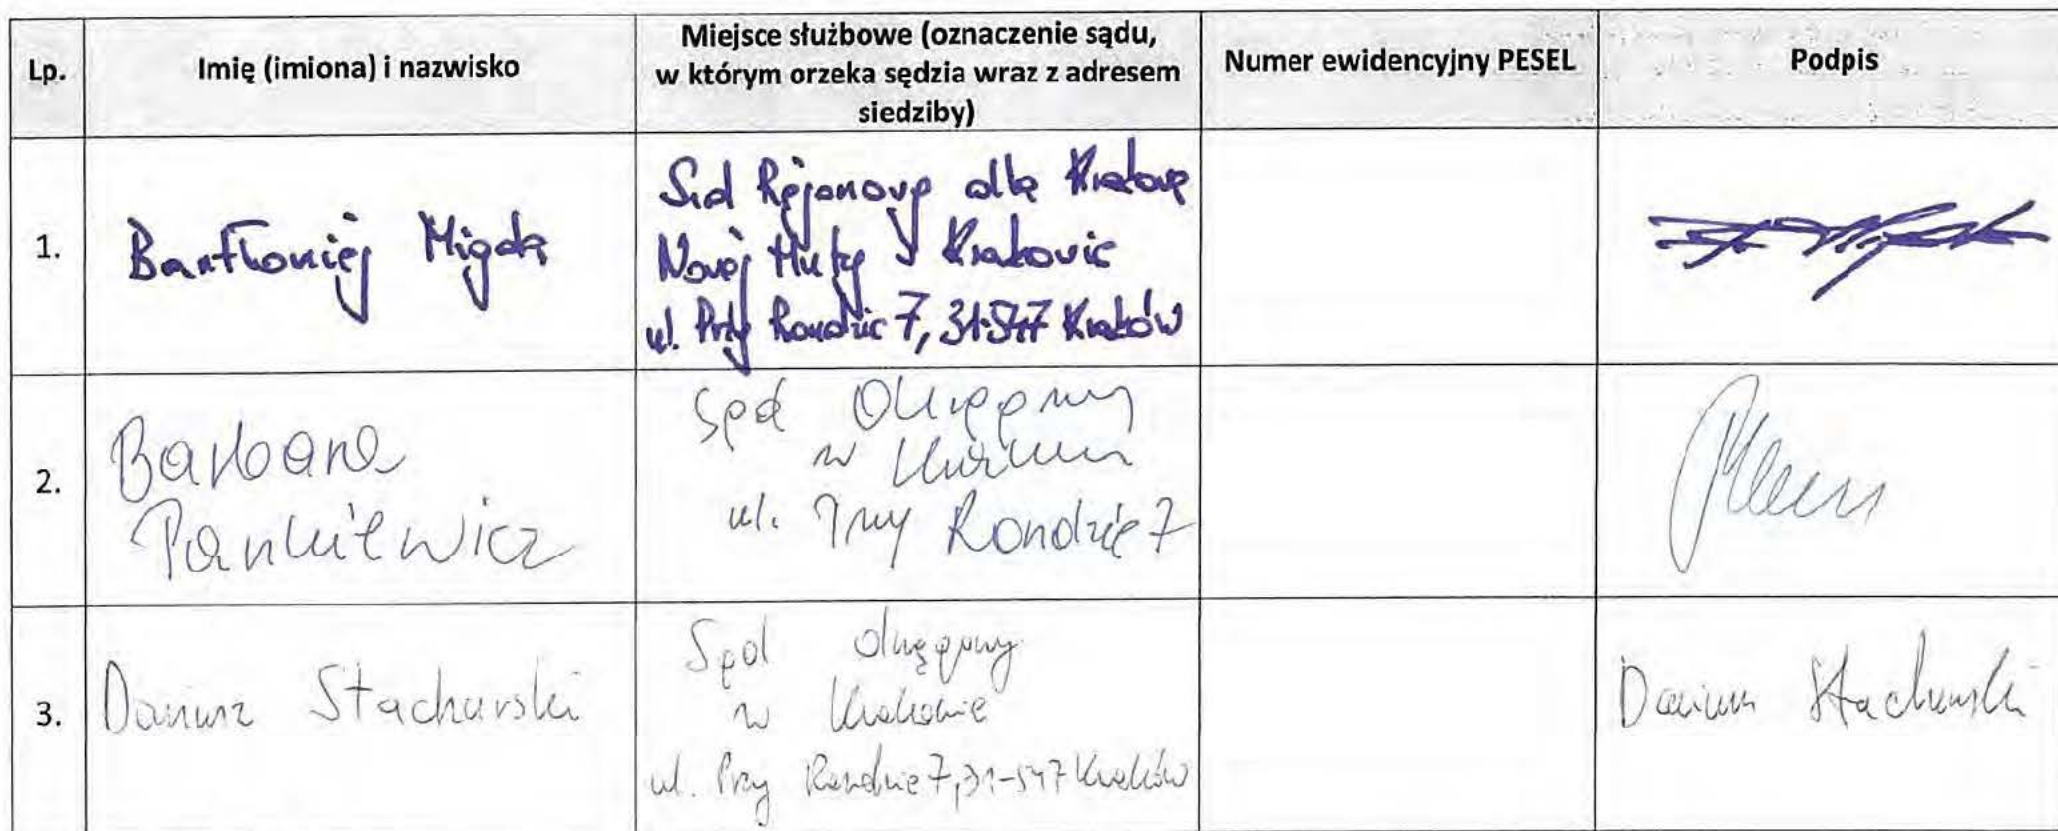 Lp.
Imię (imiona) i nazwisko
Miejsce służbowe (oznaczenie sądu,
w którym orzeka sędzia wraz z adresem
siedziby)
Numer ewidencyjny PESEL
Podpis
1.
Bartłomiej Migda
Sąd Rejonowy dla Krakowa
Nowej Huty w Krakowie
ul. Przy Rondzie 7, 31-547 Kraków
2.
Barbara
Pankiewicz
Sąd Okręgowy
w Krakowie
ul. Przy Rondzie 7
3.
Dariusz Stachurski
Sąd Okręgowy
w Krakowie
ul. Przy Rondzie 7, 31-547 Kraków
Dariusz Stachurski